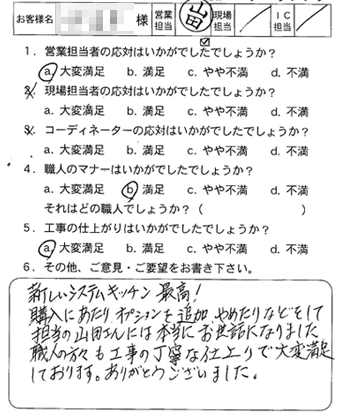 お客様名 様 営業担当 山田 現場担当 IC担当
1. 営業担当者の応対はいかがでしたでしょうか?
a. 大変満足 b. 満足 c. やや不満 d. 不満
2. 現場担当者の応対はいかがでしたでしょうか?
a. 大変満足 b. 満足 c. やや不満 d. 不満
3. コーディネーターの応対はいかがでしたでしょうか?
a. 大変満足 b. 満足 c. やや不満 d. 不満
4. 職人のマナーはいかがでしたでしょうか?
a. 大変満足 b. 満足 c. やや不満 d. 不満
それはどの職人でしょうか?( )
5. 工事の仕上がりはいかがでしたでしょうか?
a. 大変満足 b. 満足 c. やや不満 d. 不満
6. その他、ご意見・ご要望をお書き下さい。
新しいシステムキッチン最高!
購入にあたりオプションを追加、やめたりなどをして
担当の山田さんには本当にお世話になりました
職人の方々も工事の丁寧な仕上りで大変満足
しております。ありがとうございました。